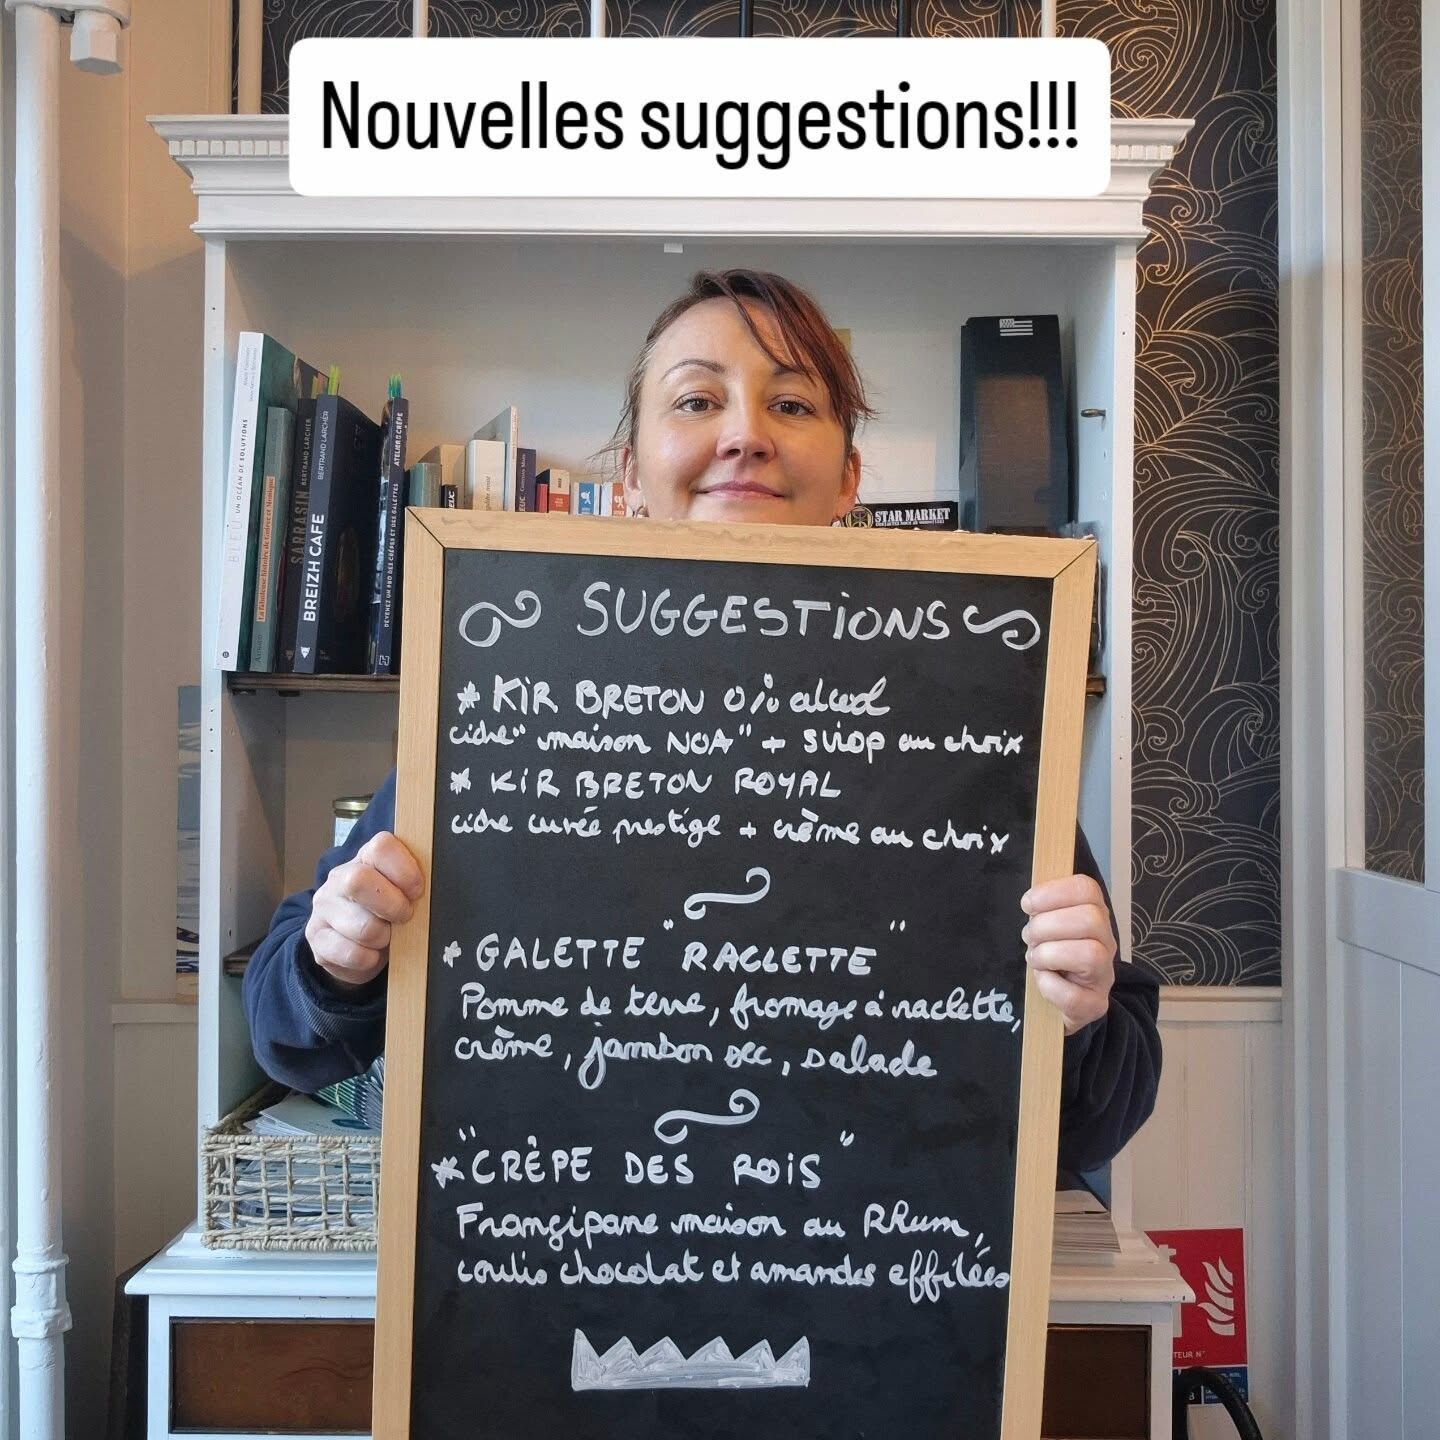 Nouvelles suggestions!!!
BLEU UN OCÉAN DE SOLUTIONS
SARRASIN BERTRAND LARCHER
BREIZH CAFE BERTRAND LARCHER
ATELIER CRÊPE
STAR MARKET
SUGGESTIONS
* KIR BRETON 0% alcool
cidre "maison NOA" + sirop au choix
* KIR BRETON ROYAL
cidre cuvée prestige + crème au choix
* GALETTE "RACLETTE"
Pomme de terre, fromage à raclette,
crème, jambon sec, salade
* "CRÊPE DES ROIS"
Frangipane maison au Rhum,
coulis chocolat et amandes effilées
TEUR N°